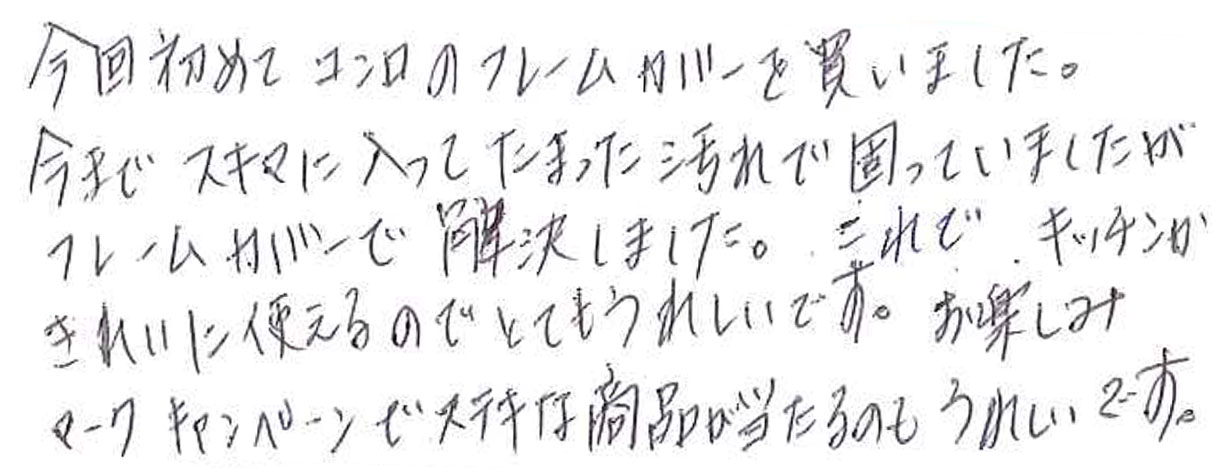 今回初めてコンロのフレームカバーを買いました。
今までスキマに入ってたまった汚れで困っていましたが
フレームカバーで解決しました。これで、キッチンが
きれいに使えるのでとてもうれしいです。お楽しみ
マークキャンペーンでステキな商品が当たるのもうれしいです。